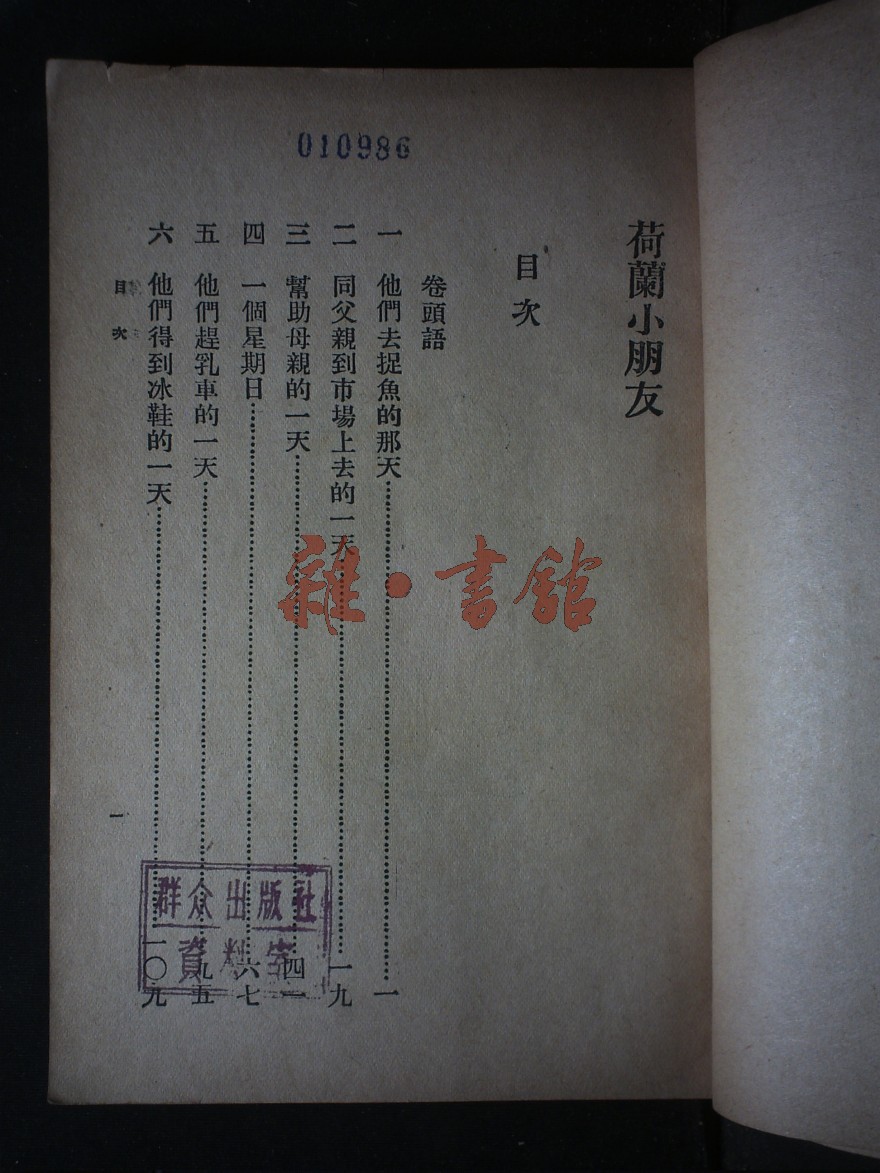 010986
荷蘭小朋友
目次
卷頭語
一 他們去捉魚的那天……一
二 同父親到市場上去的一天……一九
三 幫助母親的一天……四一
四 一個星期日……六七
五 他們趕乳車的一天……九五
六 他們得到冰鞋的一天……一〇九
目次
一
雜·書館
群众出版社
資料室